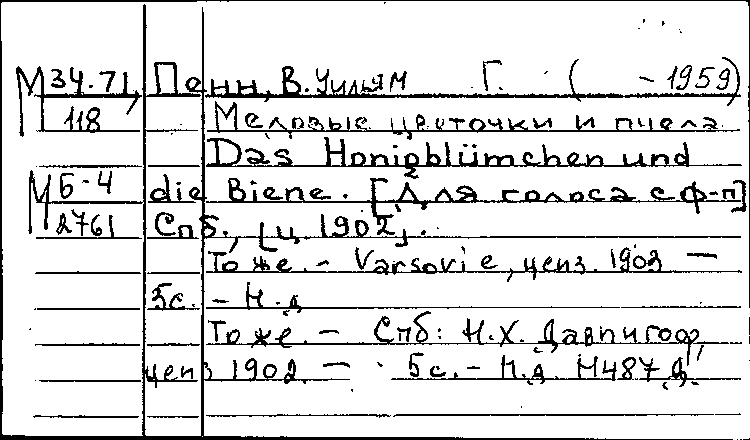 М 34.71, Пенн, В. Уильям Г. ( -1959)
118 Медовые цветочки и пчела
Das Honigblümchen und
М Б-4 die Biene. [Для голоса с ф-п]
2761 Спб., [ц. 1902].
То же. - Varsovie, ценз. 1903 —
5с. - Н.д
То же. - Спб: Н.Х. Давингоф,
ценз 1902. — 5с. - Н.д. Н487Д.